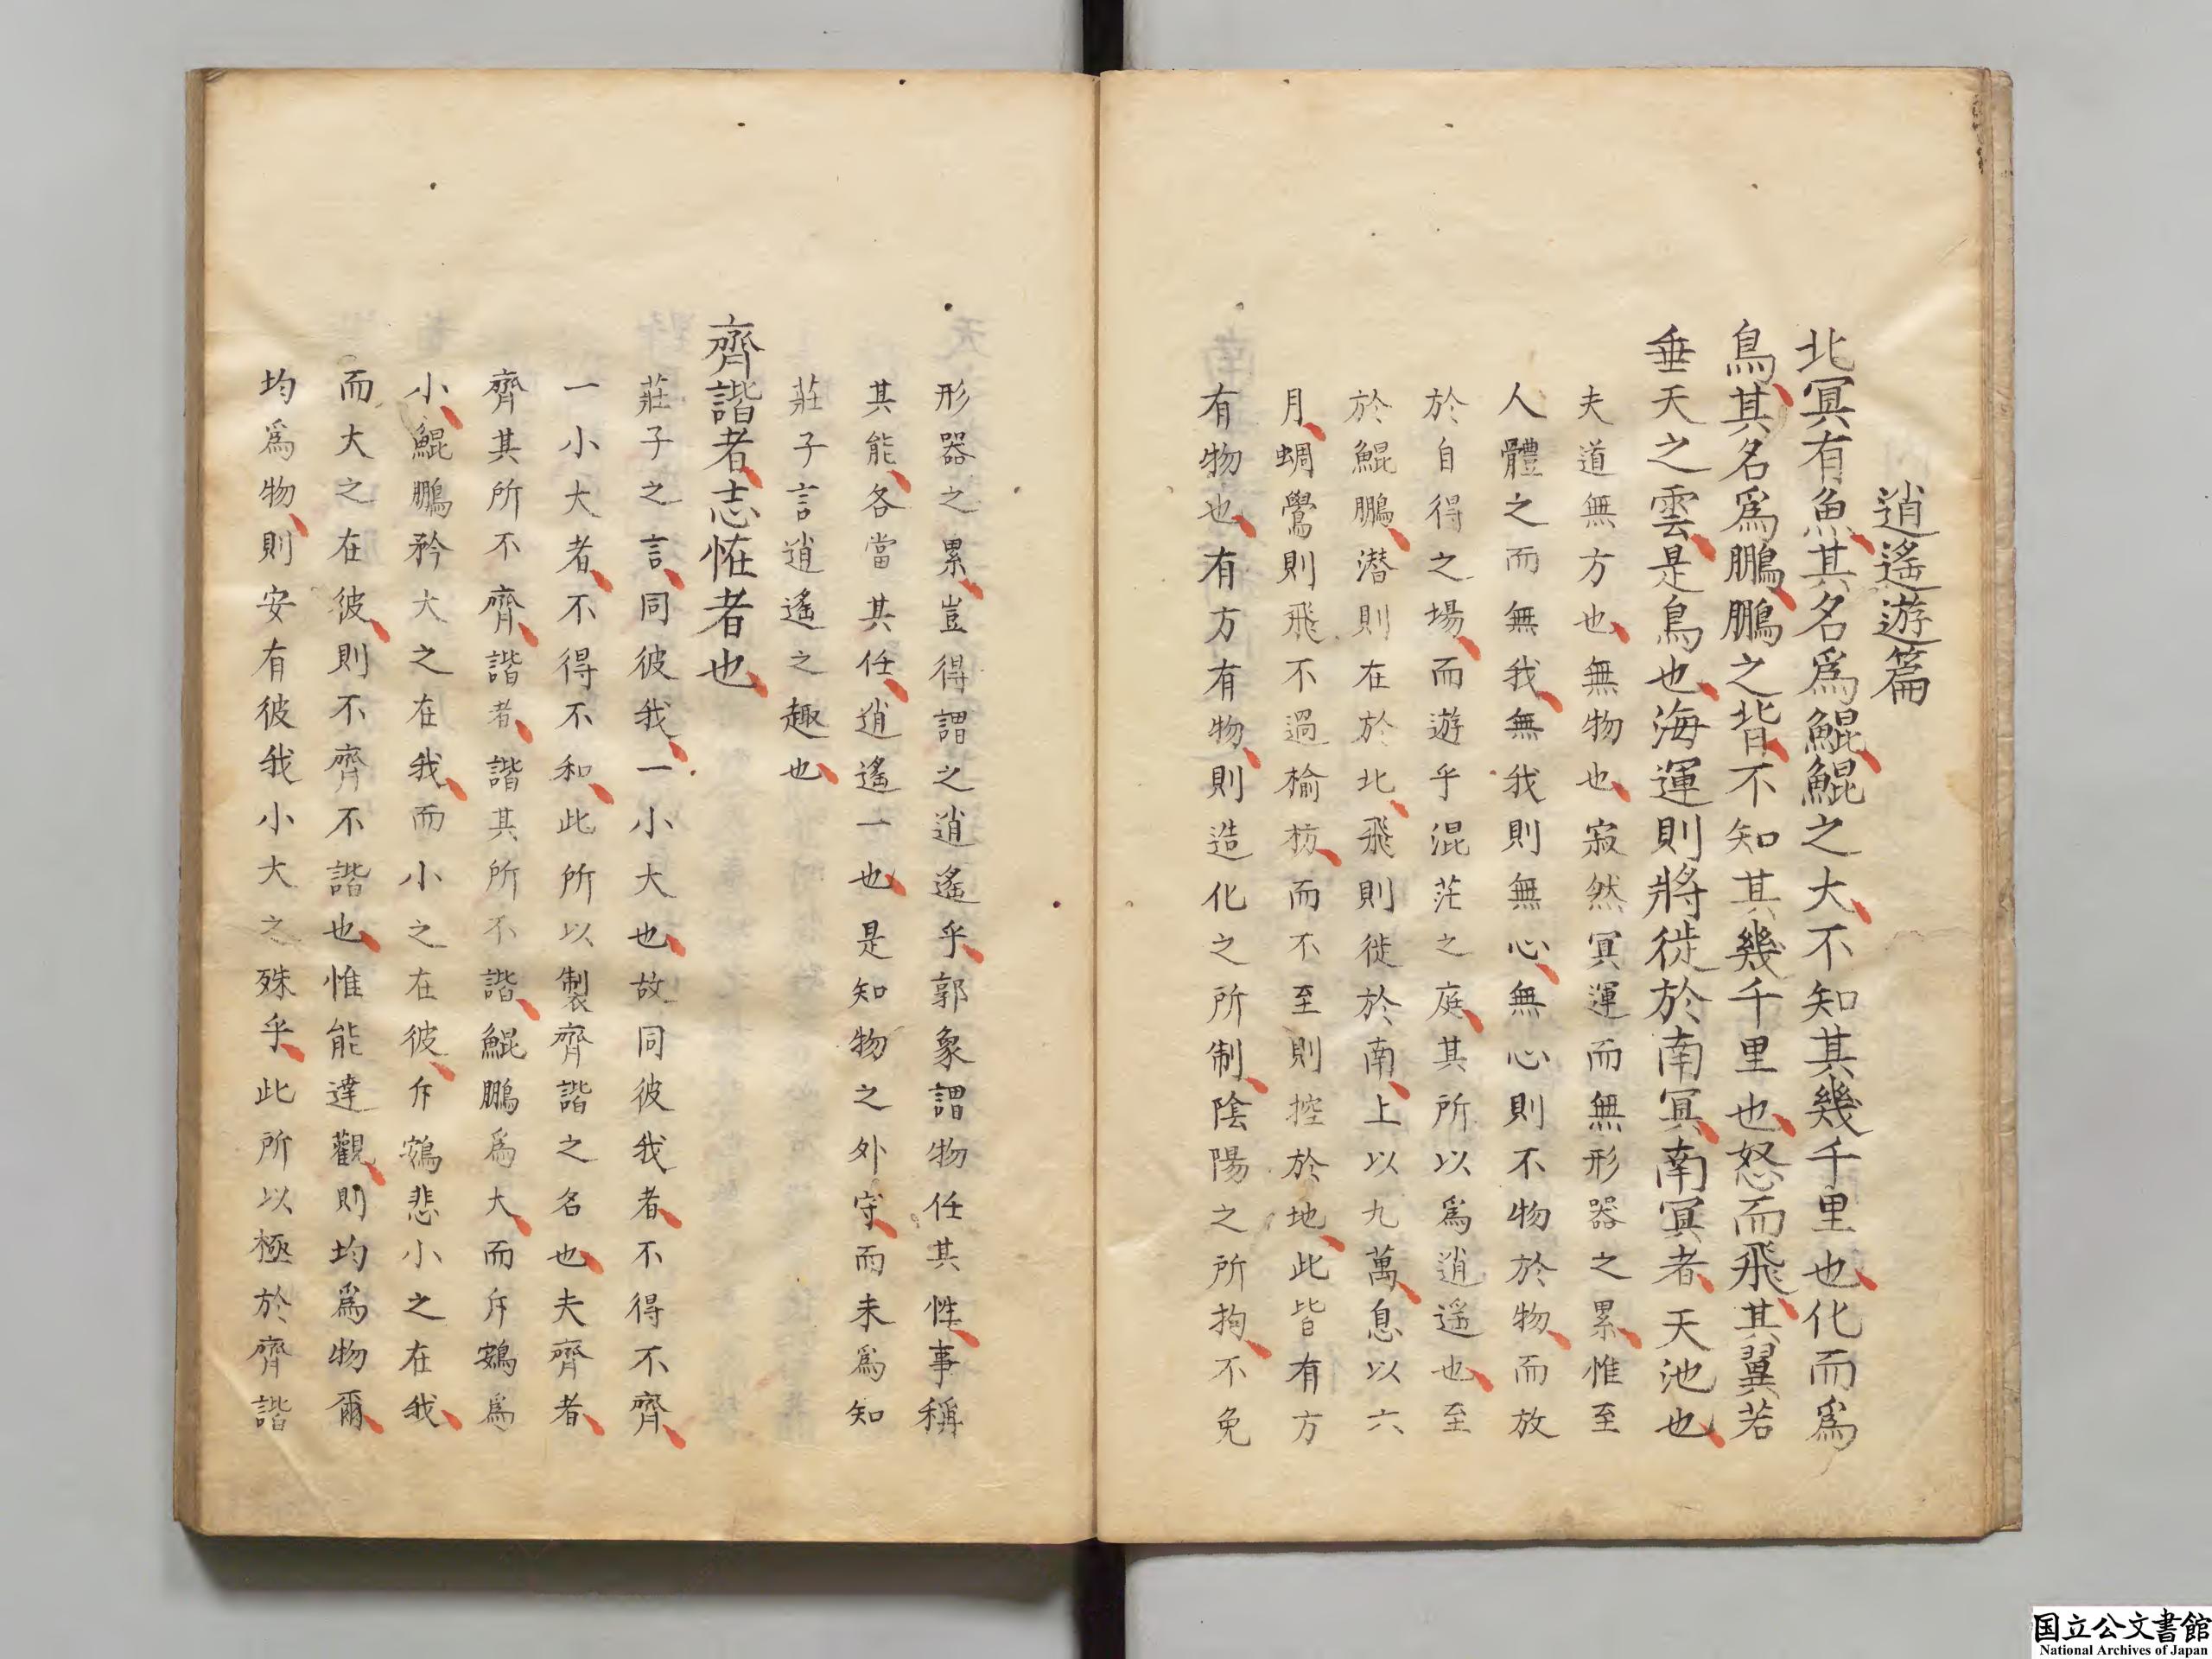 逍遙遊篇
北冥有魚其名爲鯤鯤之大不知其幾千里也化而爲
鳥其名爲鵬鵬之背不知其幾千里也怒而飛其翼若
垂天之雲是鳥也海運則將徙於南冥南冥者天池也
夫道無方也無物也寂然冥運而無形器之累惟至
人體之而無我無我則無心無心則不物於物而放
於自得之場而遊乎混茫之庭其所以爲逍遙也至
於鯤鵬潛則在於北飛則徙於南上以九萬息以六
月蜩鷽則飛不過榆枋而不至則控於地此皆有方
有物也有方有物則造化之所制陰陽之所拘不免
形器之累豈得謂之逍遙乎郭象謂物任其性事稱
其能各當其任逍遙一也是知物之外守而未爲知
莊子言逍遙之趣也
齊諧者志恠者也
莊子之言同彼我一小大也故同彼我者不得不齊
一小大者不得不和此所以製齊諧之名也夫齊者
齊其所不齊諧者諧其所不諧鯤鵬爲大而斥鴳爲
小鯤鵬矜大之在我而小之在彼斥鴳悲小之在我
而大之在彼則不齊不諧也惟能達觀則均爲物爾
均爲物則安有彼我小大之殊乎此所以極於齊諧
国立公文書館
National Archives of Japan